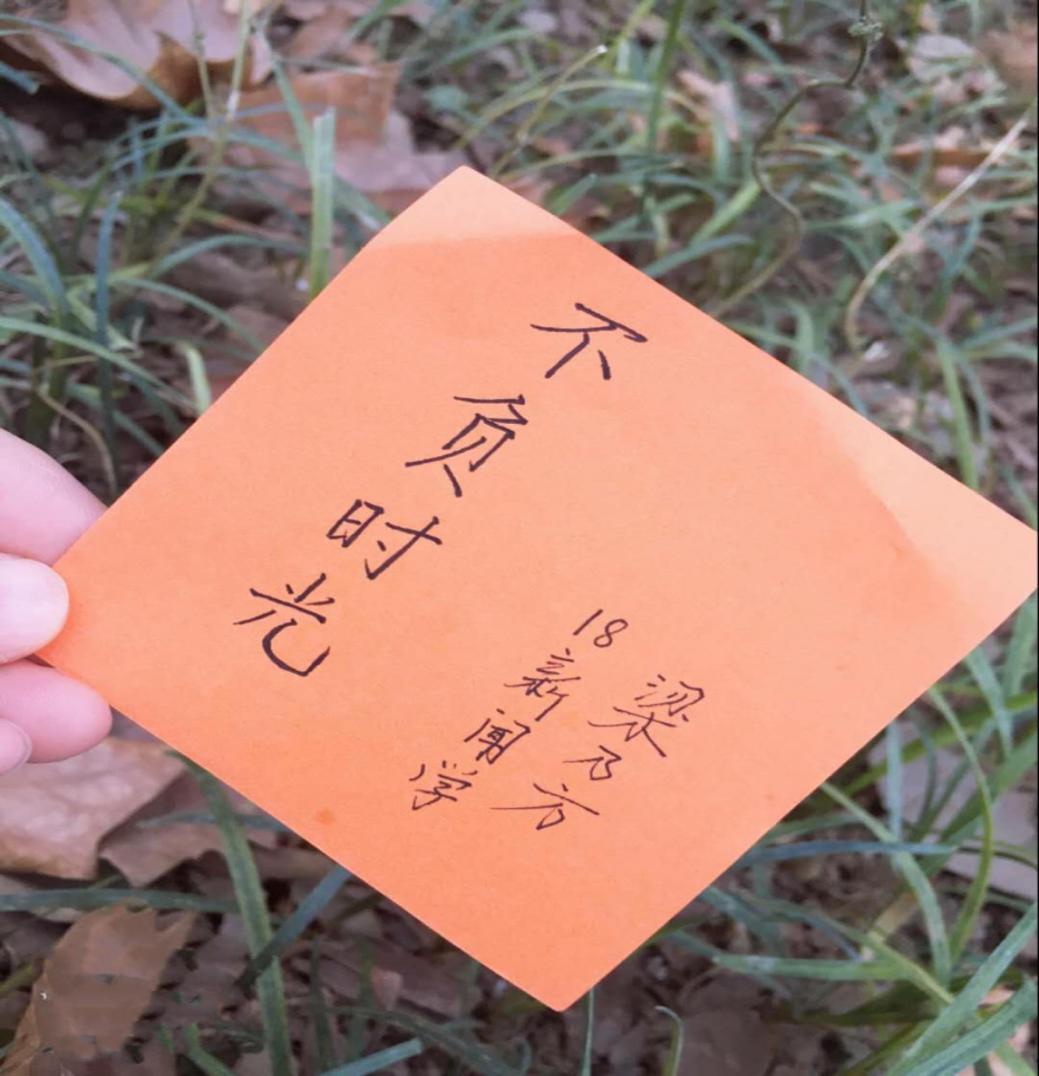 不负时光
18新闻学
梁乃方